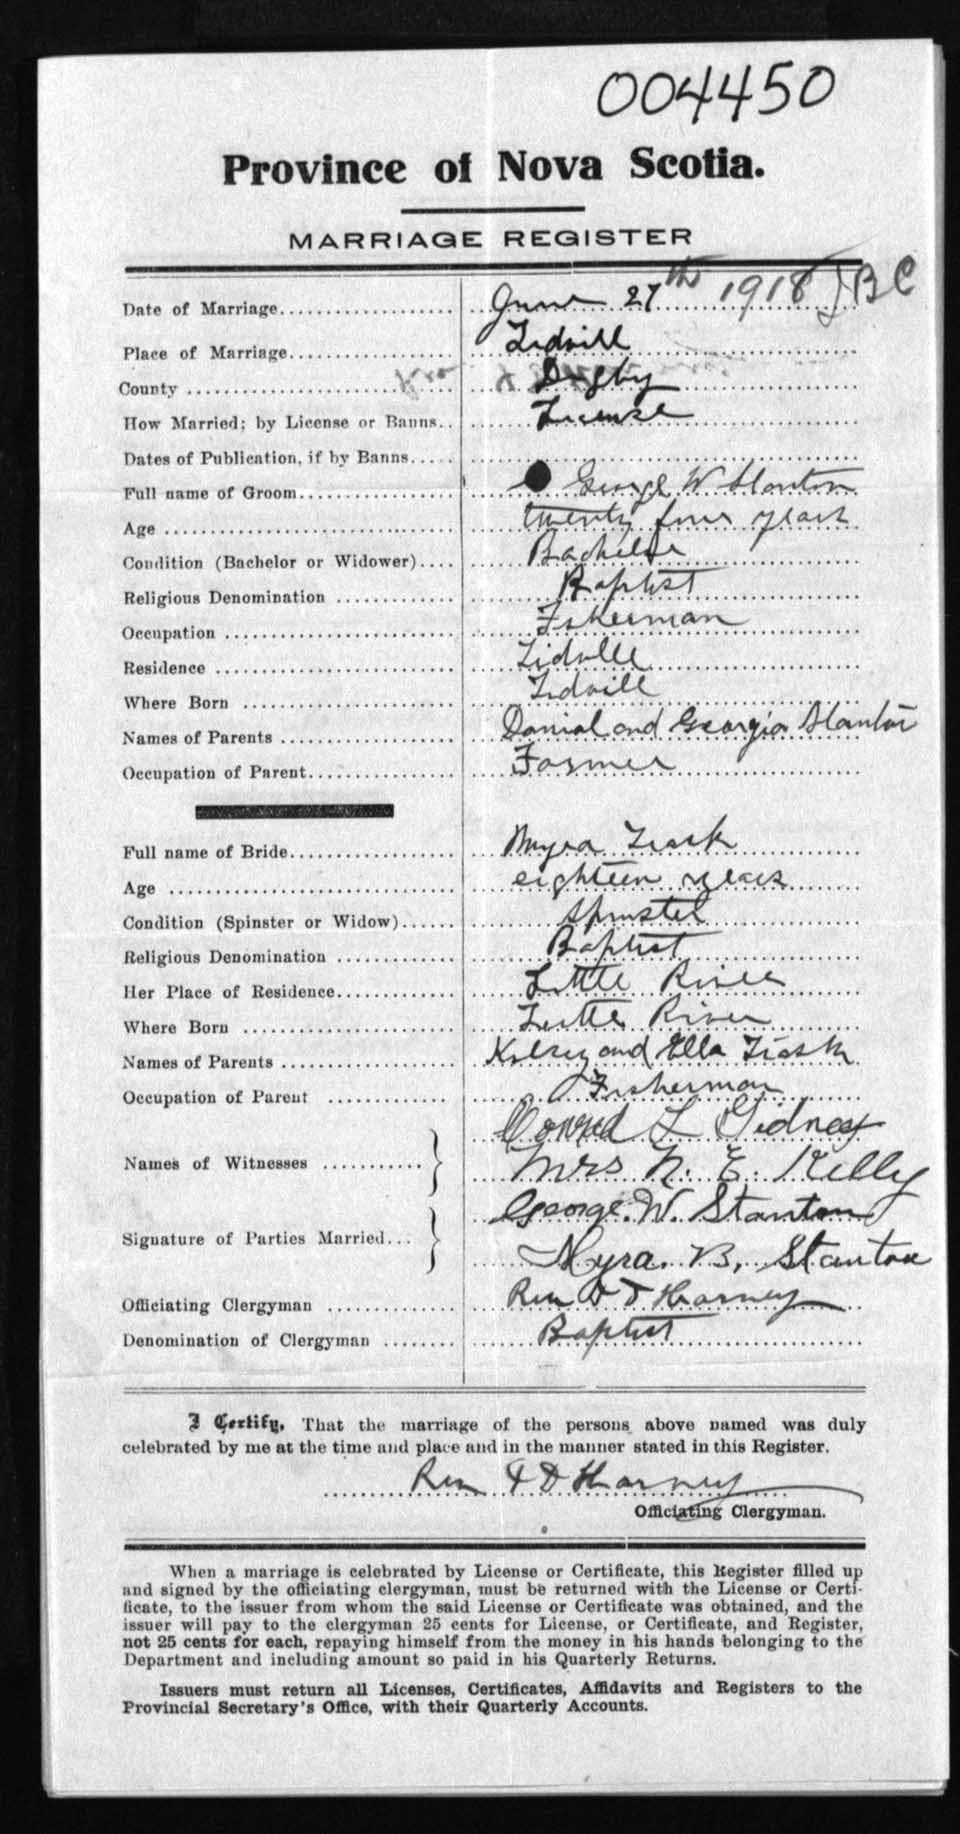 004450
Province of Nova Scotia.
MARRIAGE REGISTER
Date of Marriage................... June 27th 1918 JBC
Place of Marriage................... Tidvill
County ................... Digby
How Married; by License or Banns.. License
Dates of Publication, if by Banns.....
Full name of Groom................... George W Stanton
Age ................... twenty four years
Condition (Bachelor or Widower).... Bachelor
Religious Denomination ............ Baptist
Occupation ................... Fisherman
Residence ................... Tidville
Where Born ................... Tidvill
Names of Parents ................... Danial and Georgia Stanton
Occupation of Parent................ Farmer
Full name of Bride................... Myra Trask
Age ................... eighteen years
Condition (Spinster or Widow)...... Spinster
Religious Denomination ............ Baptist
Her Place of Residence............ Little River
Where Born ................... Little River
Names of Parents ................... Kelsey and Ella Trask
Occupation of Parent ............ Fisherman
Names of Witnesses ........... Conrad L Gidney
Mrs N. E. Kelly
Signature of Parties Married... George. W. Stanton
Myra. B. Stanton
Officiating Clergyman ............ Rev Harney
Denomination of Clergyman ........ Baptist
I Certify, That the marriage of the persons above named was duly
celebrated by me at the time and place and in the manner stated in this Register.
Rev Harney
Officiating Clergyman.
When a marriage is celebrated by License or Certificate, this Register filled up
and signed by the officiating clergyman, must be returned with the License or Certi-
ficate, to the issuer from whom the said License or Certificate was obtained, and the
issuer will pay to the clergyman 25 cents for License, or Certificate, and Register,
not 25 cents for each, repaying himself from the money in his hands belonging to the
Department and including amount so paid in his Quarterly Returns.
Issuers must return all Licenses, Certificates, Affidavits and Registers to the
Provincial Secretary's Office, with their Quarterly Accounts.